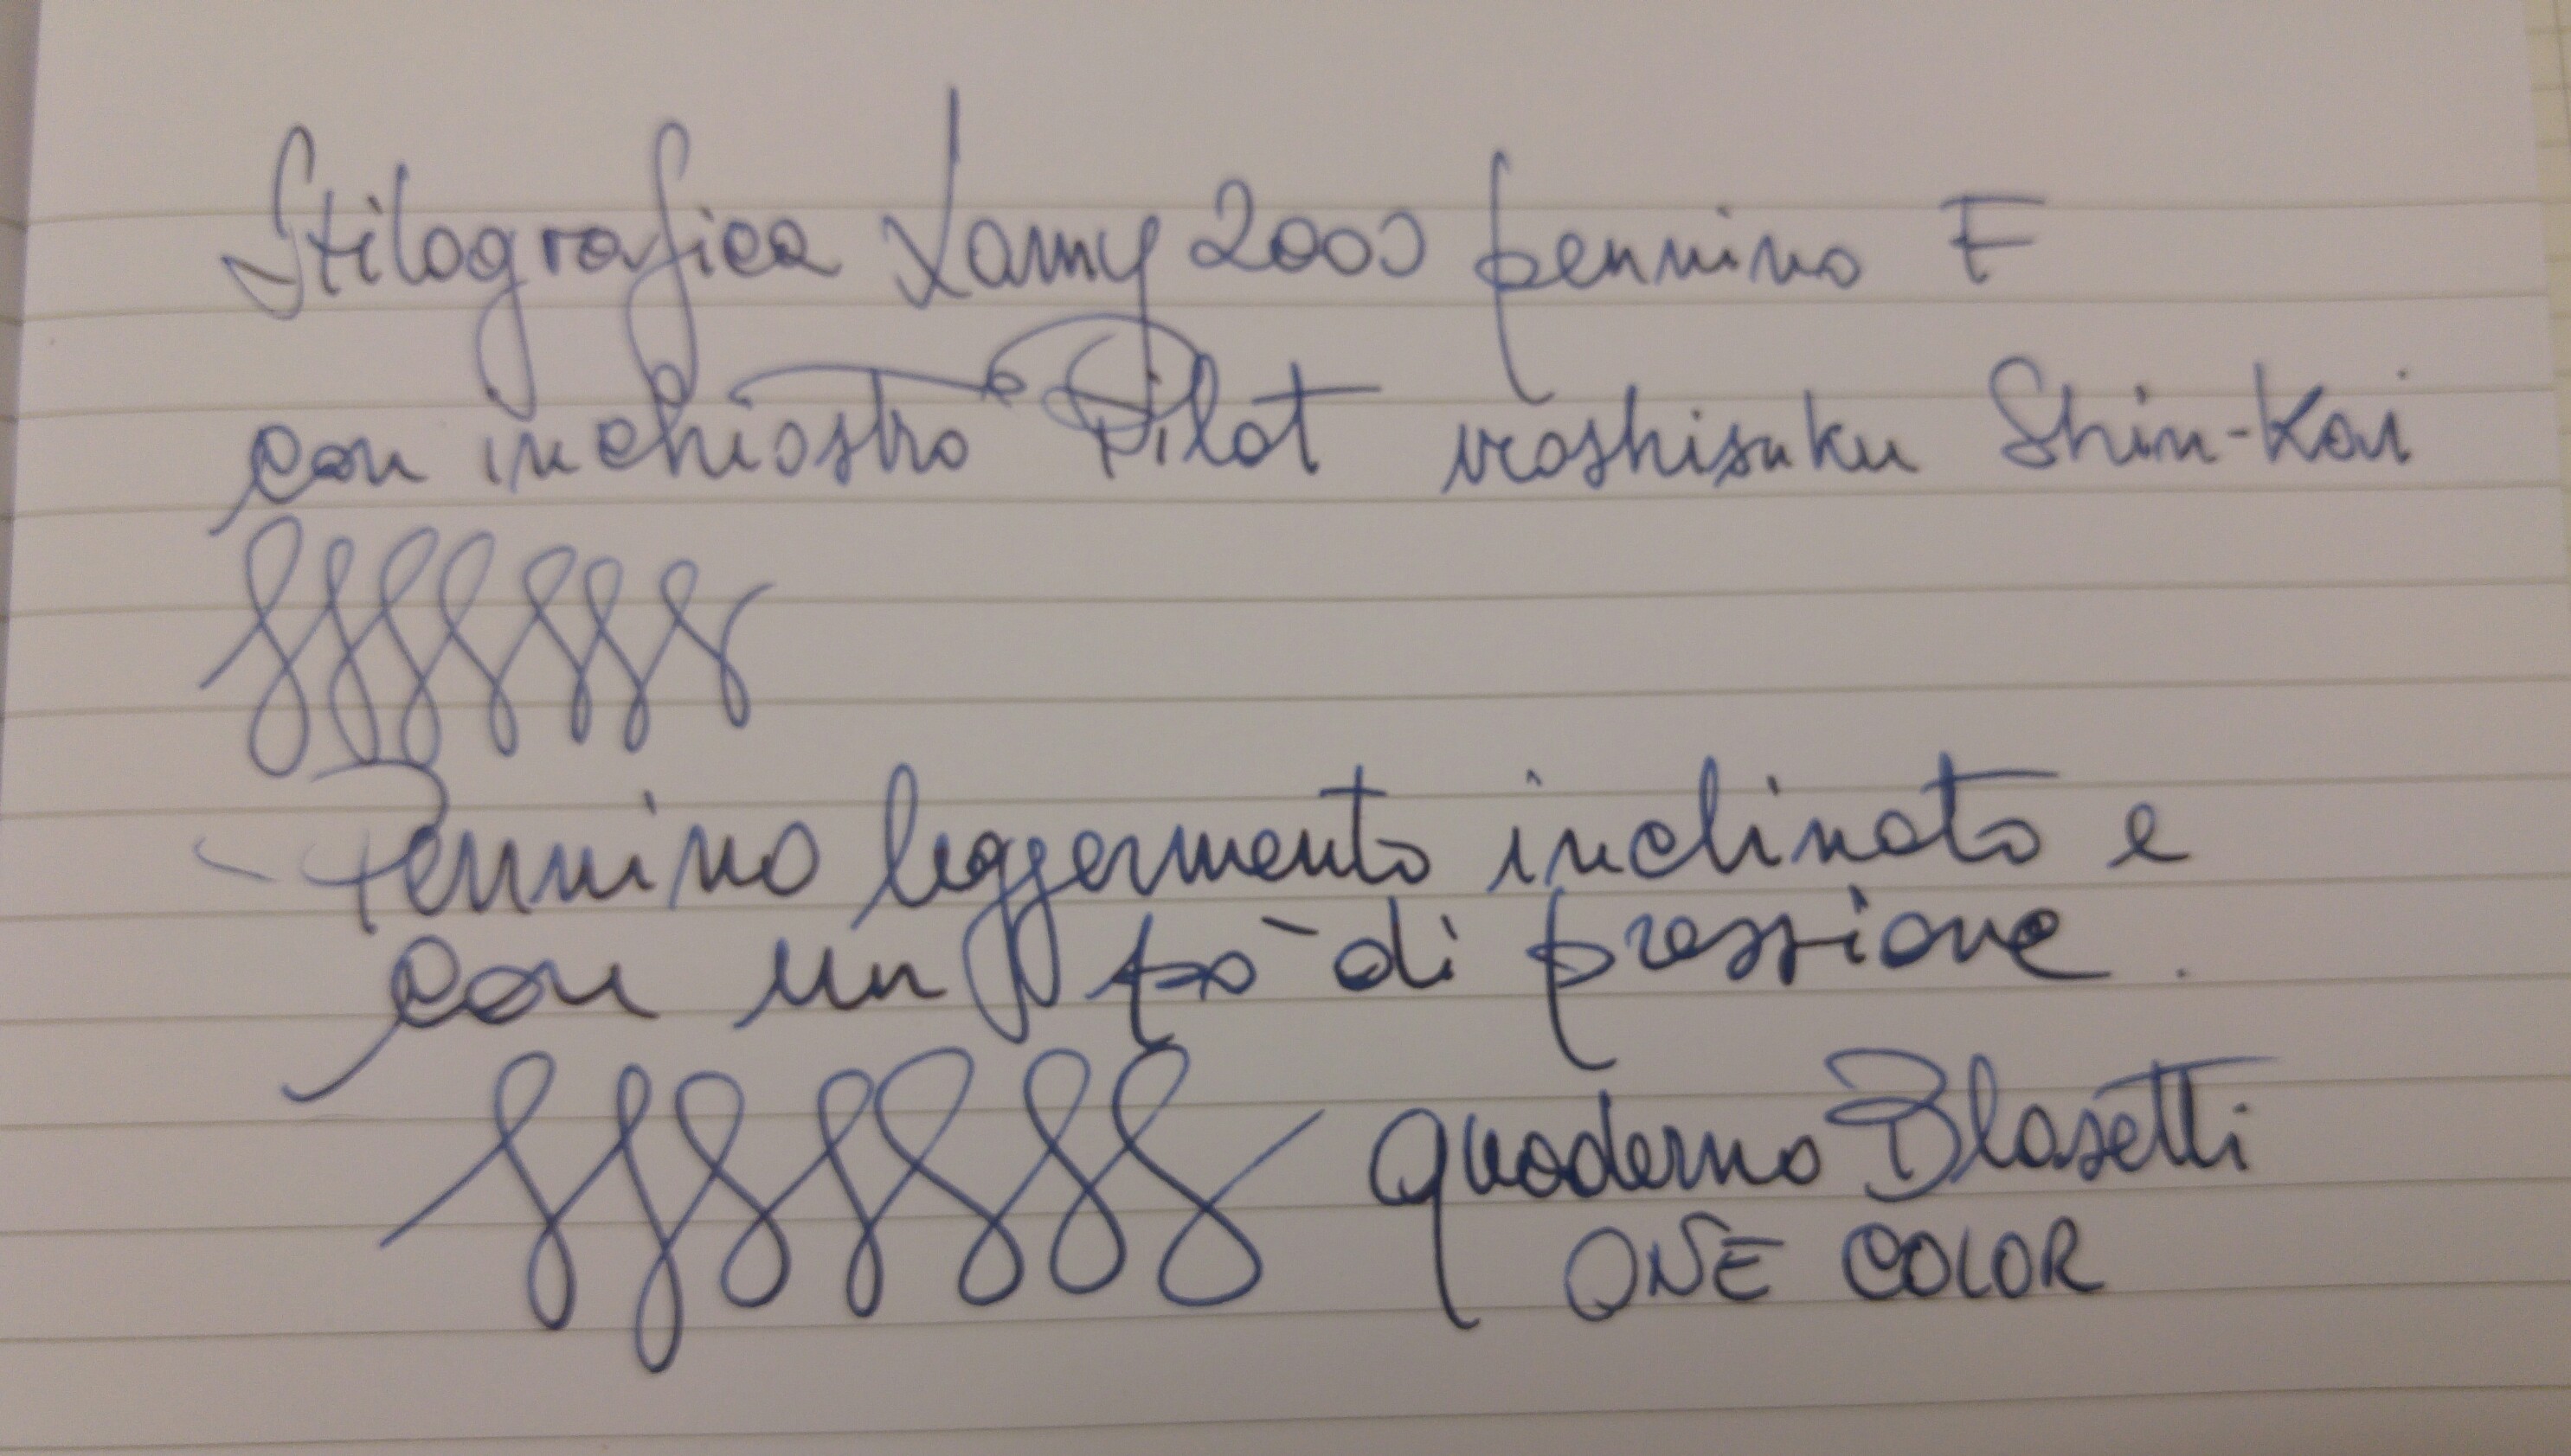 Stilografica Lamy 2000 pennino F
con inchiostro Pilot iroshizuku Shin-Kai
Pennino leggermente inclinato e
con un pò di pressione.
quaderno Blasetti
ONE COLOR